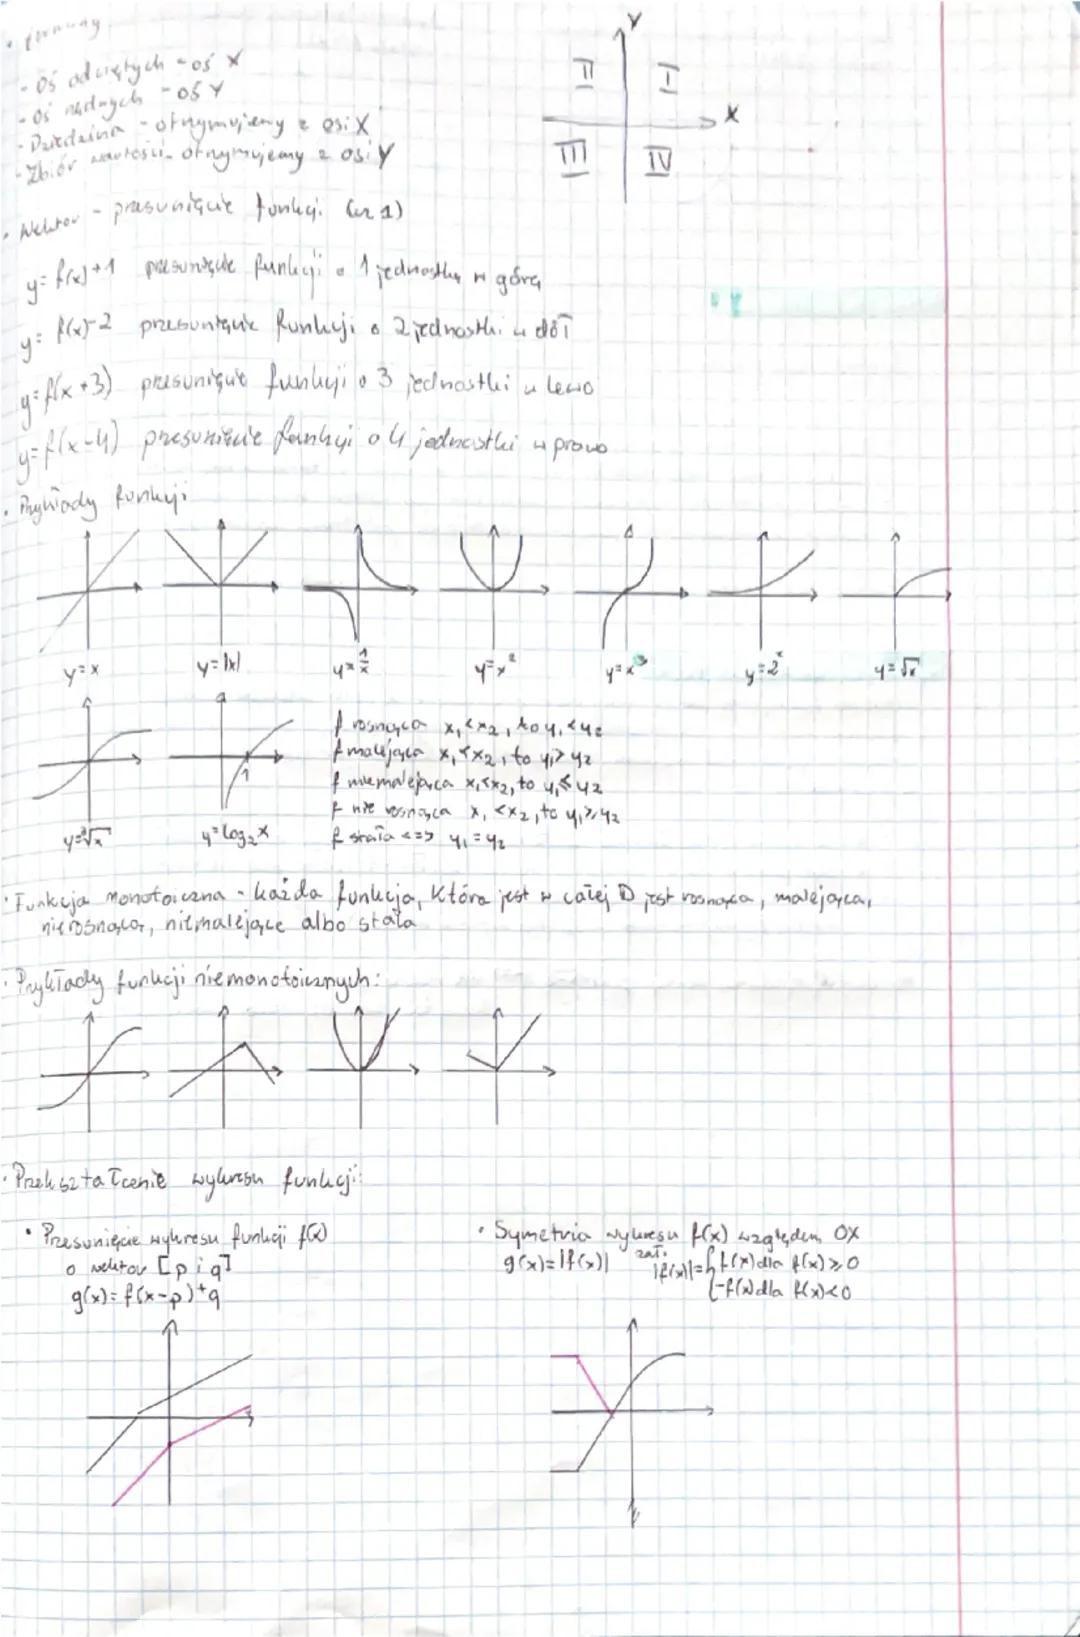 - Oś odciętych - oś X
Y
II I
- Oś rzędnych - oś Y
X
- Dziedzina - otrzymujemy z osi X
III IV
- Zbiór wartości - otrzymujemy z osi Y
• Wektor - przesunięcie funkcji
y=f(x)+1 przesunięcie funkcji o 1 jednostkę w górę
y=f(x)-2 przesunięcie funkcji o 2 jednostki w dół
y=f(x+3) przesunięcie funkcji o 3 jednostki w lewo
y=f(x-4) przesunięcie funkcji o 4 jednostki w prawo
• Przykłady funkcji
y=x y=|x| y=1/x y=x² y=x³ y=2ˣ y=√x
f rosnąca x₁<x₂, to y₁<y₂
f malejąca x₁<x₂, to y₁>y₂
1
f niemalejąca x₁<x₂, to y₁≤y₂
f nie rosnąca x₁<x₂, to y₁≥y₂
y=∛x y=log₂x f stała <=> y₁=y₂
• Funkcja monotoiczna - każda funkcja, która jest w całej D jest rosnąca, malejąca,
nierosnąca, niemalejące albo stała
• Przykłady funkcji niemonotoicznych:
• Przekształcenie wykresu funkcji:
• Przesunięcie wykresu funkcji f(x)
o wektor [p i q]
g(x)=f(x-p)+q
• Symetria wykresu f(x) względem OX
zał.
g(x)=|f(x)| |f(x)|={f(x) dla f(x)≥0
{-f(x) dla f(x)<0